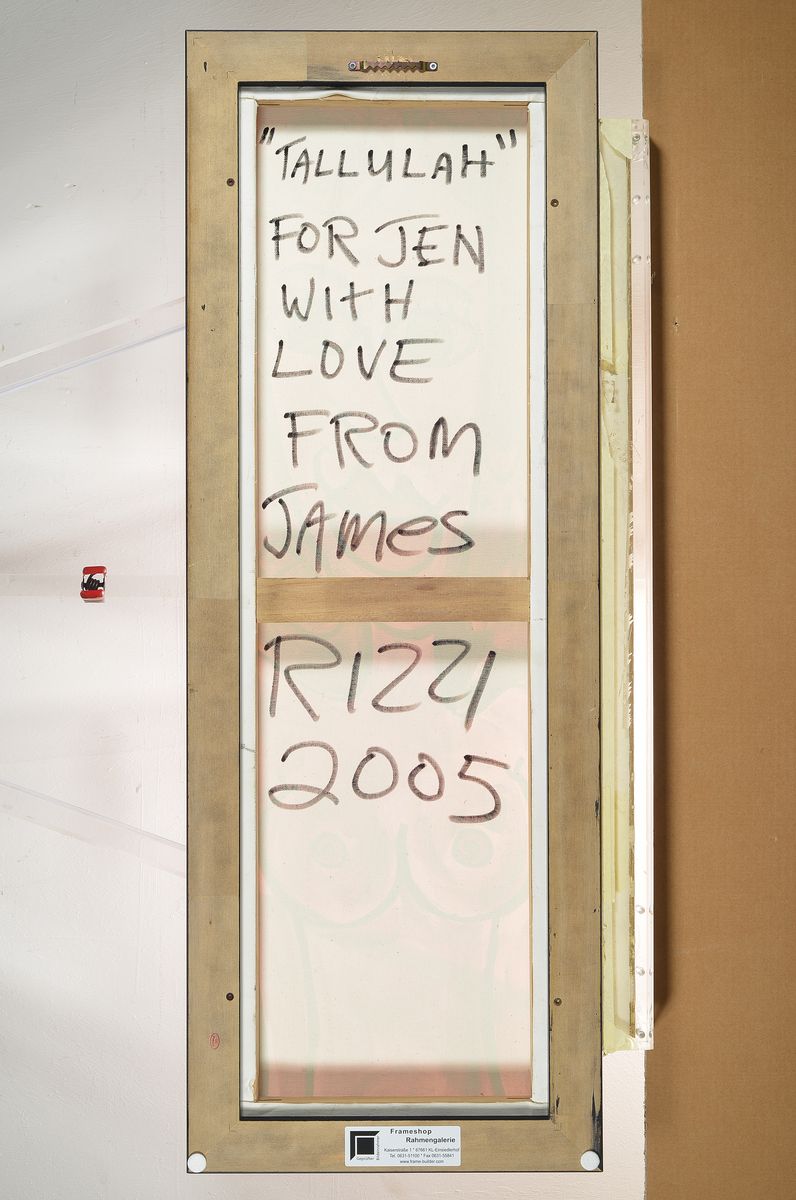 "TALLULAH"
FOR JEN
WITH
LOVE
FROM
JAMES
RIZZI
2005
Frameshop
Rahmengalerie
Kaiserstraße 1 * 67661 KL-Einsiedlerhof
Tel. 0631-51100 * Fax 0631-55841
www.frame-builder.com